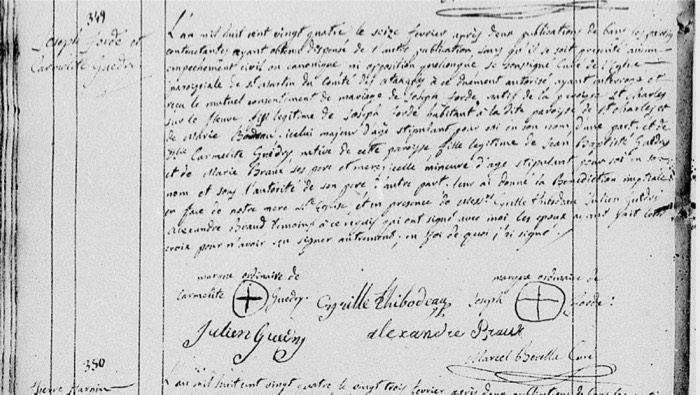 349
Joseph Sorde et
Carmelite Guedry
L'an mil huit cent vingt quatre le seize fevrier après deux publications de bans les parties
contractantes ayant obtenu dispense de l'autre publication sans qu'il se soit presenté aucun
empechement civil ou canonique ni opposition quelconque le soussigné Curé de l'Eglise
paroissiale de St Martin du Comté des Atakapas à ce dûement autorisé ayant interrogé et
reçu le mutuel consentiment de mariage de Joseph Sorde natif de la paroisse St Charles
sur le fleuve fils legitime de Joseph Sorde habitant à la dite paroisse de St Charles et
de Marie icelui majeur d'age stipulant pour soi en son nom d'une part, et de
Carmelite Guédry native de cette paroisse, fille legitime de Jean Baptiste Guédry
et de Marie Braux ses pere et mere, icelle mineure d'age stipulant pour soi en son
nom et sous l'autorité de son pere d'autre part, leur ai donné la Benediction
en face de notre mere Ste Eglise, et en presence de Cyrille Thibodeau Julien Guédry
Alexandre Braud temoins à ce requis qui ont signé avec moi les epoux ayant fait leur
croix pour n'avoir su signer autrement; en foi de quoi j'ai signé
marque ordinaire de
Carmelite Guedry
Cyrille Thibodeau
marque ordinaire de
Joseph Sorde
Julien Guédry
alexandre Braux
Marcel Borella Curé
350
Pierre
L'an mil huit cent vingt quatre le vingt trois fevrier après deux publications de bans les